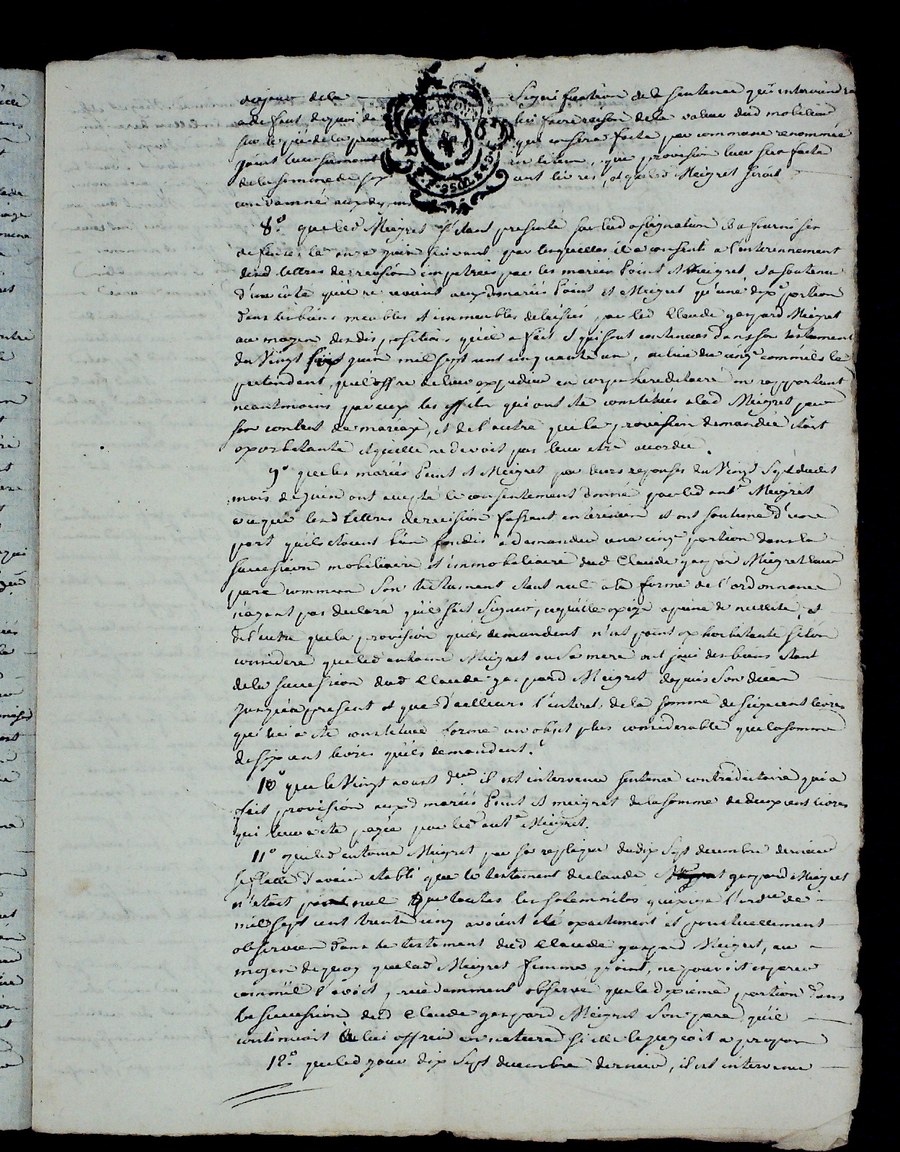 du jour de la signification de la sentence qui interviendra
a deffaut de quoi de lui faire raison de la valeur dud mobilier
sur le pied de la preuve qui en sera faite par commune renommée
que provision leur fut faite
de la somme de six cent livres, et que led Meigret seroit
condamné aux dep
8.° que led Meigret s'étant presenté sur lad assignation il a fourni ses
deffenses le onze juin suivant, par lesquelles il a consenti a l'interinnement
desd lettres de rescision impetrées par les mariés Point et Meigret, et a soutenu
d'une côté qu'il ne revient auxd mariés Point et Meigret qu'une dix.e portion
dans les biens meubles et immeubles delaissés par led Claude gaspard Meigret
au moyen des dispositions qu'il a fait et qui sont contenues dans son testament
du Vingt juin mil sept cent cinquante un, au lieu du cinq.e comme ils le
pretendent, qu'il offre de leur expedier en corps hereditaire en rapportant
neantmoins par eux les effets qui ont été constitués a lad Meigret par
son contrat de mariage, et de l'autre que la provision demandée étoit
exorbitante et qu'elle ne devoit pas leur etre accordée.
9.° que les mariés Point et Meigret par leurs reponses du Vingt Sept desdits
mois de juin ont accepté le consentement donné par led ant.e Meigret
a ce que lesd lettres de rescision fussent interinées et ont soutenu d'une
part qu'ils étoient bien fondés a demander une cinq.e portion dans la
succession mobiliaire et immobiliaire dud Claude gaspar Meigret leur
pere commun son testament étant nul a la forme de l'ordonnance
n'ayant pas declaré qu'il sut signer, ce qu'elle exige a peine de nullité, et
de l'autre que la provision qu'ils demandent n'est point exhorbitante si l'on
considere que led antoine Meigret ou sa mere ont joui des biens étant
de la succession dud Claude gaspard Meigret depuis son deces
jusqu'a present et que d'ailleurs l'interet de la somme de six cent livres
qui lui a été constituée forme un objet plus considerable que la somme
de six cent livres qu'ils demandent.
10° que le Vingt aoust d.er il est intervenu sentence contradictoire qui a
fait provision auxd mariés Point et meigret de la somme de deux cent livres
qui leur a été payée par led ant.e Meigret.
11° que led antoine Meigret par sa replique du dix Sept decembre dernier
se flatte d'avoir etabli que le testament de claude gaspard Meigret
n'étoit point nul que toutes les solemnités qu'exige l'ord.ce de
mil sept cent trente cinq avoient été exactement et ponctuellement
observées dans le testament dud Claude gaspard Meigret, au
moyen de quoy que lad Meigret femme Point, ne pouvoit esperer
comme il l'avoit precedemment observé que la dixieme portion dans
la succession dud Claude gaspard Meigret son pere qu'il
continuoit de lui offrir en nature si elle le jugeoit a propos
12.° que led jour dix Sept decembre dernier, il est intervenu